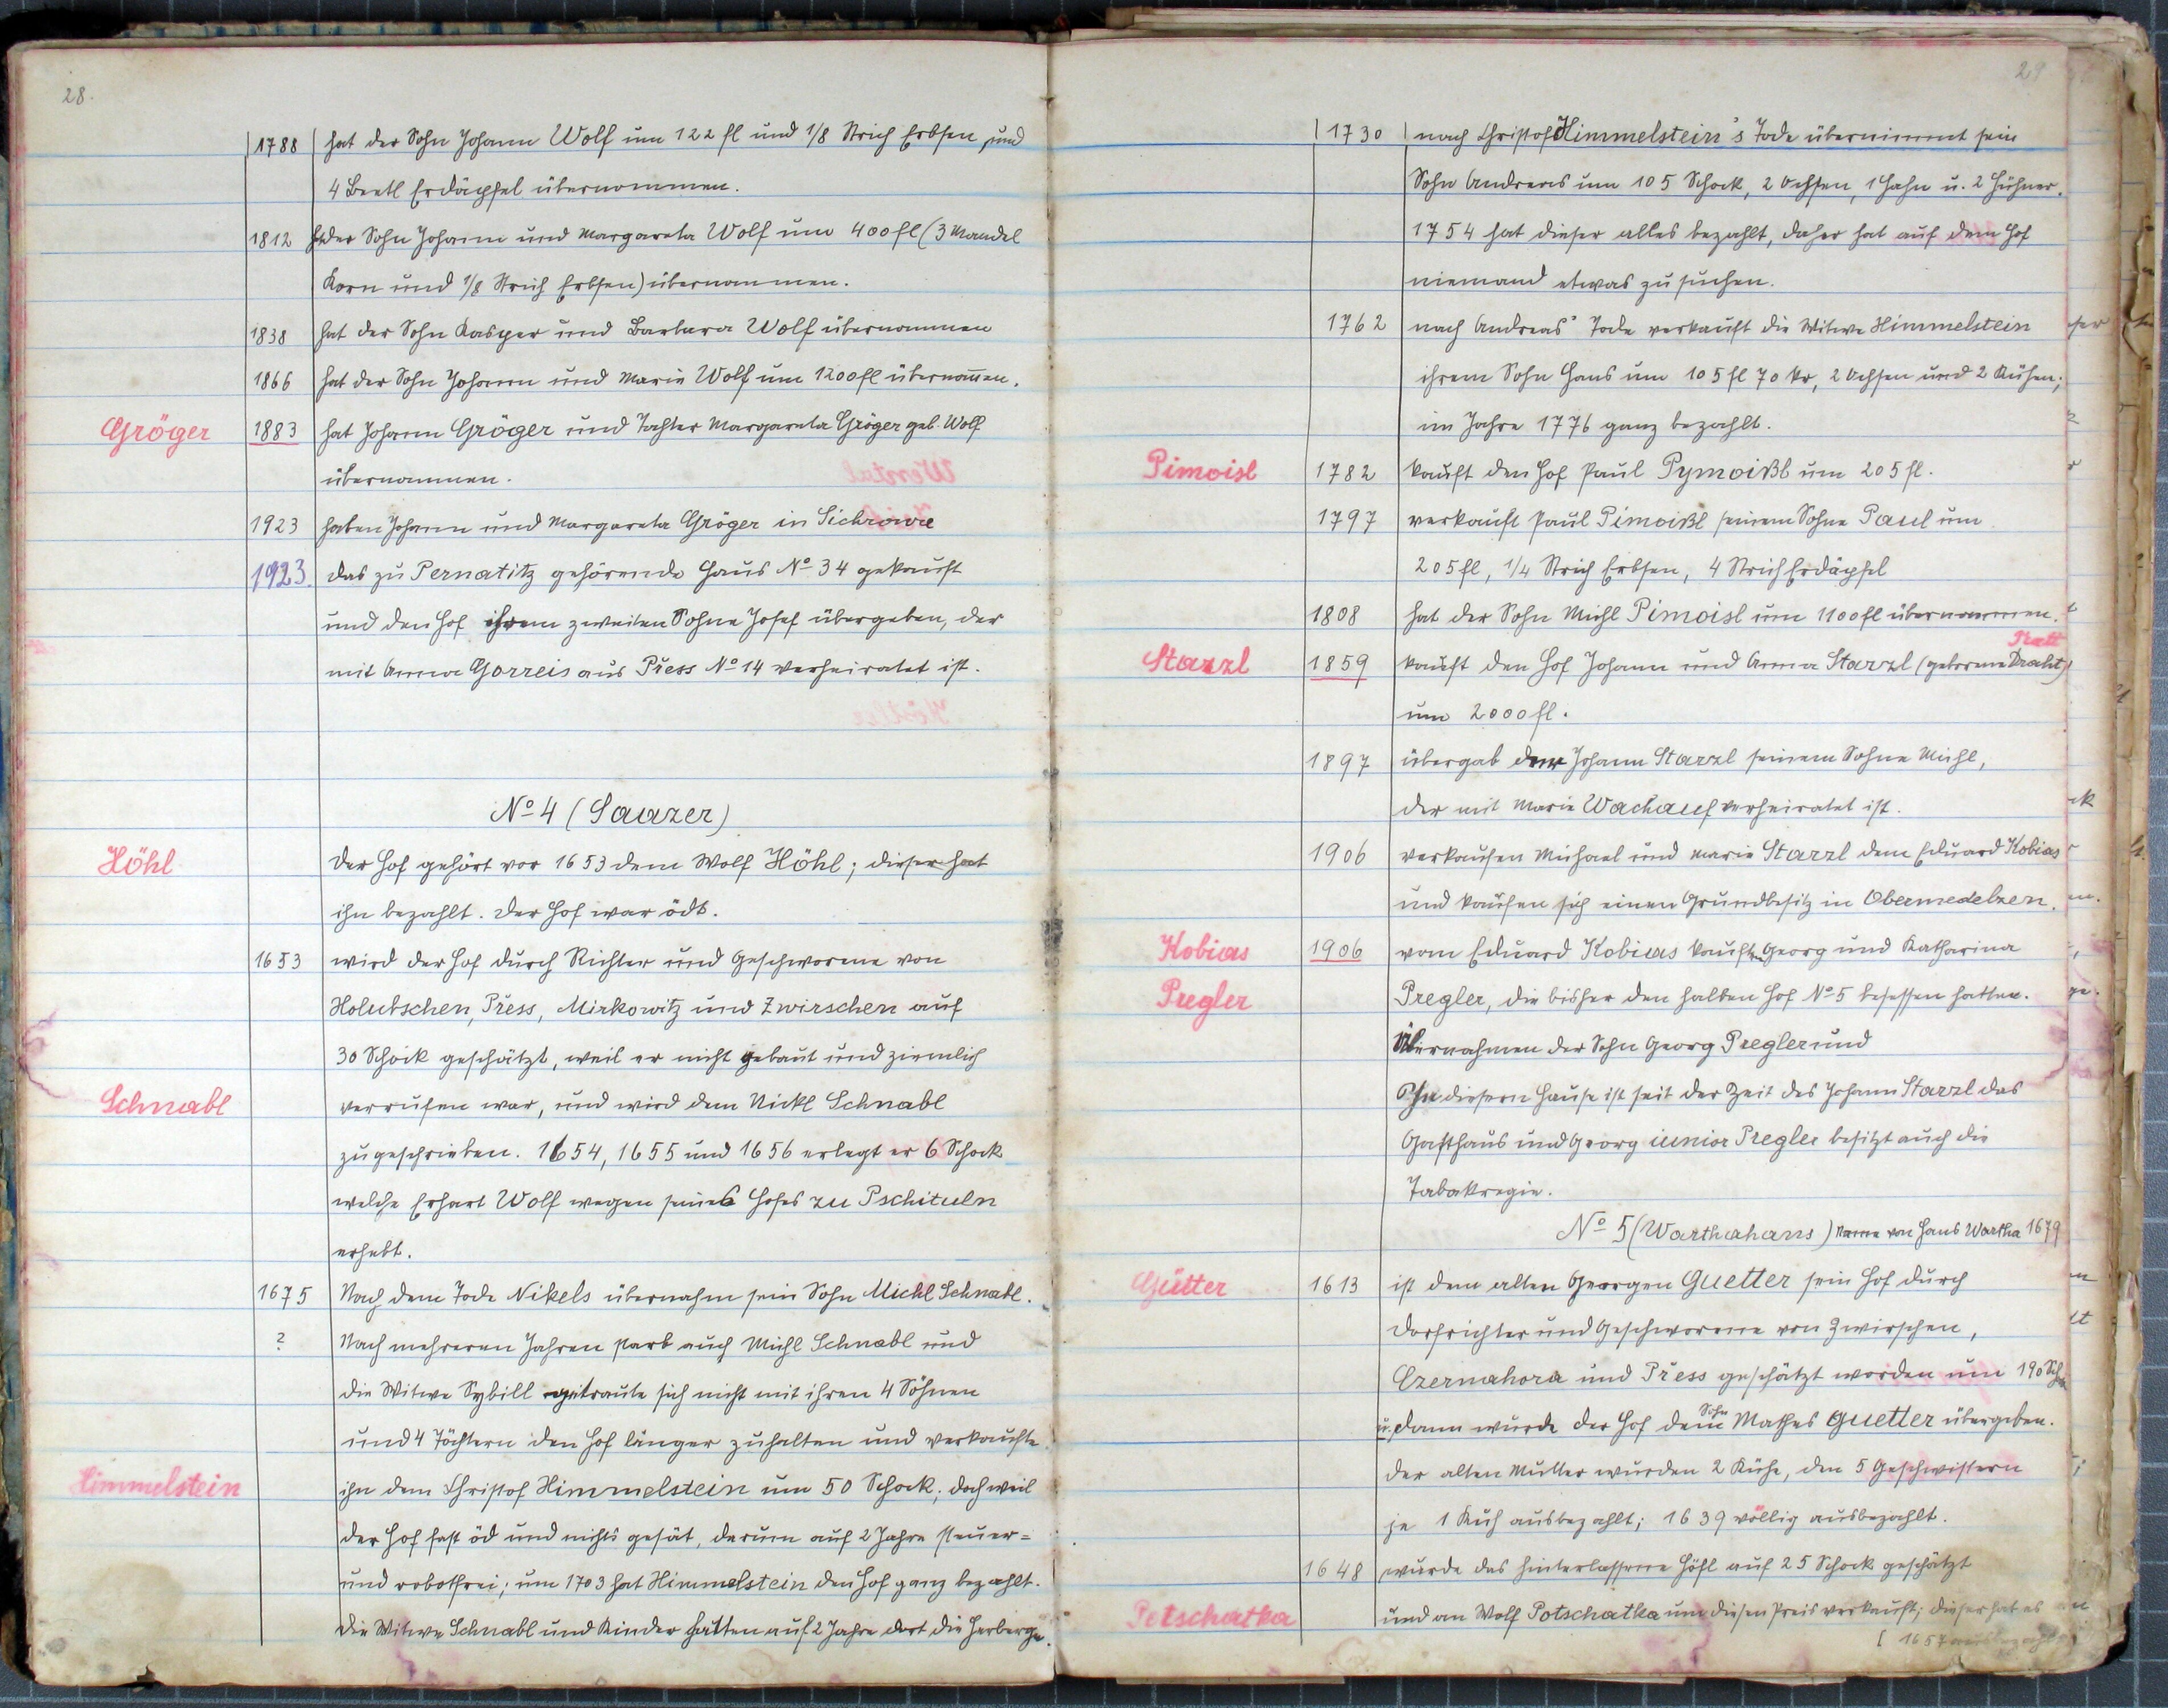 28.
1788 hat der Sohn Johann Wolf um 122 fl und 1/8 Strich Erbsen und
4 Beetl Erdäpfel übernommen.
1812 der Sohn Johann und Margareta Wolf um 400 fl (3 Mandel
Korn und 1/8 Strich Erbsen) übernommen.
1838 hat der Sohn Kasper und Barbara Wolf übernommen
1866 hat der Sohn Johann und Marie Wolf um 1200 fl übernom̄en.
Gröger 1883 hat Johann Gröger und Tochter Margareta Gröger geb. Wolf
übernommen.
1923 haben Johann und Margareta Gröger in Sichrowe
1923. das zu Pernatitz gehörende Haus No 34 gekauft
und den Hof ihrem zweiten Sohne Josef übergeben, der
mit Anna Gorreis aus Press No 14 verheiratet ist.
No 4 (Saazer)
Höhl Der Hof gehört vor 1653 dem Wolf Höhl; dieser hat
ihn bezahlt. Der Hof war ödt.
1653 wird der Hof durch Richter und Geschworene von
Holubschen, Press, Mirkowitz und Zwirschen auf
30 Schock geschätzt, weil er nicht gebaut und ziemlich
verrufen war, und wird dem Nickl Schnabl
Schnabl
zugeschrieben. 1654, 1655 und 1656 erlegt er 6 Schock
welche Erhart Wolf wegen seines Hofes zu Pschituln
erhebt.
1675 Nach dem Tode Nikels übernahm sein Sohn Michl Schnabl.
? Nach mehreren Jahren starb auch Michl Schnabl und
die Witwe Sybill getraute sich nicht mit ihren 4 Söhnen
und 4 Töchtern den Hof länger zu halten und verkaufte
Himmelstein ihn dem Christof Himmelstein um 50 Schock; doch weil
der Hof fast öd und nichts gesät, darum auf 2 Jahre steuer=
und robotfrei; um 1703 hat Himmelstein den Hof ganz bezahlt.
Die Witwe Schnabl und Kinder hatten auf 2 Jahre dort die Herberge.
29
1730 nach Christof Himmelstein's Tode übernimmt sein
Sohn Andreas um 105 Schock, 2 Ochsen, 1 Hahn u. 2 Hühner.
1754 hat dieser alles bezahlt, daher hat auf dem Hof
niemand etwas zu suchen.
1762 nach Andreas' Tode verkauft die Witwe Himmelstein
ihrem Sohn Hans um 105 fl 70 kr, 2 Ochsen und 2 Kühen;
im Jahre 1776 ganz bezahlt.
Pimoisl 1782 kauft den Hof Paul Pymoißl um 205 fl.
1797 verkauft Paul Pimoißl seinem Sohne Paul um
205 fl, 1/4 Strich Erbsen, 4 Strich Erdäpfel
1808 hat der Sohn Michl Pimoisl um 1100 fl übernommen.
Tratt
Starzl 1859 kauft den Hof Johann und Anna Starzl (geborene Draht)
um 2000 fl.
1897 übergab der Johann Starzl seinem Sohne Michl,
der mit Marie Wachauf verheiratet ist.
1906 verkaufen Michael und Marie Starzl dem Eduard Kobias
und kaufen sich einen Grundbesitz in Obermedelzen.
Kobias 1906 vom Eduard Kobias kauften Georg und Katharina
Pregler Pregler, die bisher den halben Hof No 5 besessen hatten.
Übernahmen der Sohn Georg Pregler und
In diesem Hause ist seit der Zeit des Johann Starzl das
Gasthaus und Georg iunior Pregler besitzt auch die
Tabakregie.
No 5 (Warthahans) Name von Hans Wartha 1679
Gütter 1613 ist dem alten Georgen Guetter sein Hof durch
Dorfrichter und Geschworene von Zwirschen,
Czernahora und Press geschätzt worden um 190 Sch
u. dann wurde der Hof dem Sohn Mathes Guetter übergeben.
Der alten Mutter wurden 2 Kühe, den 5 Geschwistern
je 1 Kuh ausbezahlt; 1639 völlig ausbezahlt.
1648 wurde das hinterlassene Höfl auf 25 Schock geschätzt
Petschatka und an Wolf Potschatka um diesen Preis verkauft; dieser hat es
[ 1657 ausbezahlt